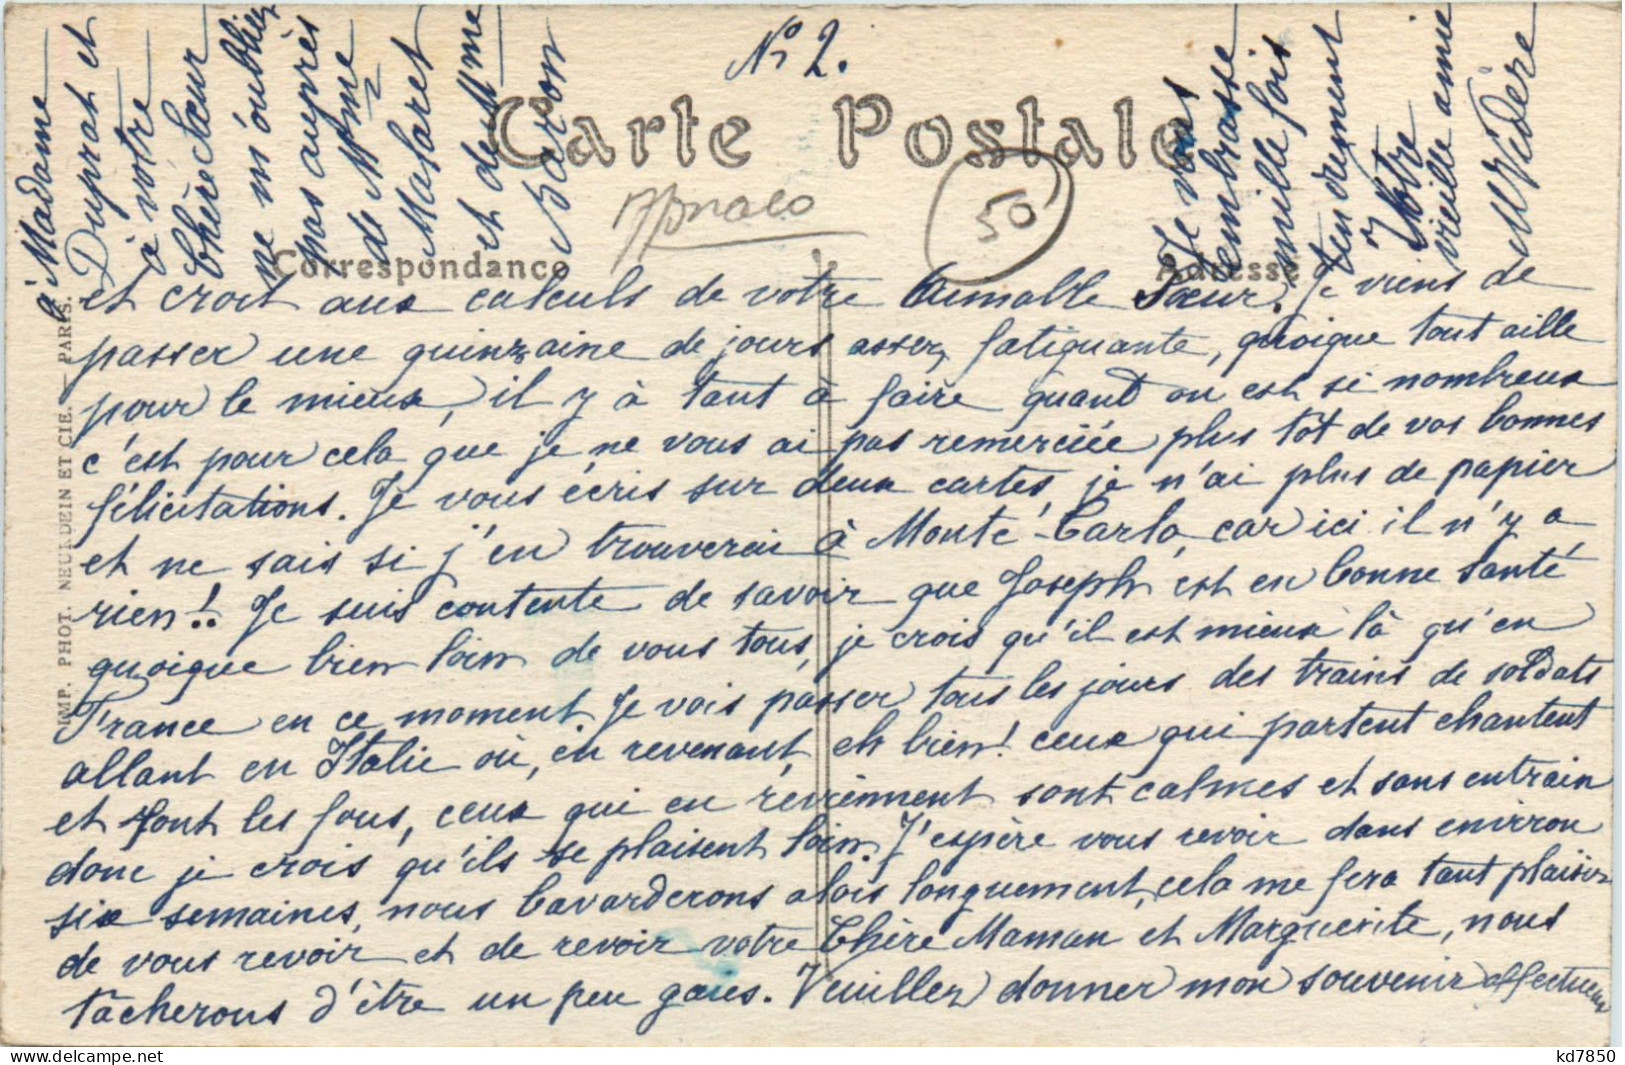 No 2.
Carte Postale
Monaco
50
Correspondance
Adresse
IMP. PHOT. NEURDEIN ET CIE. — PARIS.
et croit aux calculs de votre aimable Sœur. Je viens de
passer une quinzaine de jours assez fatiguante, quoique tout aille
pour le mieux, il y à tant à faire quand on est si nombreux
c'est pour cela que je ne vous ai pas remerciée plus tôt de vos bonnes
félicitations. Je vous écris sur deux cartes, je n'ai plus de papier
et ne sais si j'en trouverai à Monté-Carlo, car ici il n'y a
rien!.. Je suis contente de savoir que Joseph est en bonne santé
quoique bien loin de vous tous, je crois qu'il est mieux là qu'en
France en ce moment. Je vois passer tous les jours des trains de soldats
allant en Italie où, en revenant, eh bien! ceux qui partent chantent
et font les fous, ceux qui en reviennent sont calmes et sans entrain
donc je crois qu'ils se plaisent loin. J'espère vous revoir dans environ
six semaines, nous bavarderons alois longuement, cela me fera tant plaisir
de vous revoir et de revoir votre Chère Maman et Marguerite, nous
tâcherons d'être un peu gaies. Veuillez donner mon souvenir affectueux
à Madame
Duprat et
à votre
Chère sœur
ne m'oubliez
pas auprès
de Mme
Mafaret
et de Mme
Baron
Je vous
embrasse
mille fois
tendrement
Votre
vieille amie
M Védère
kd7850